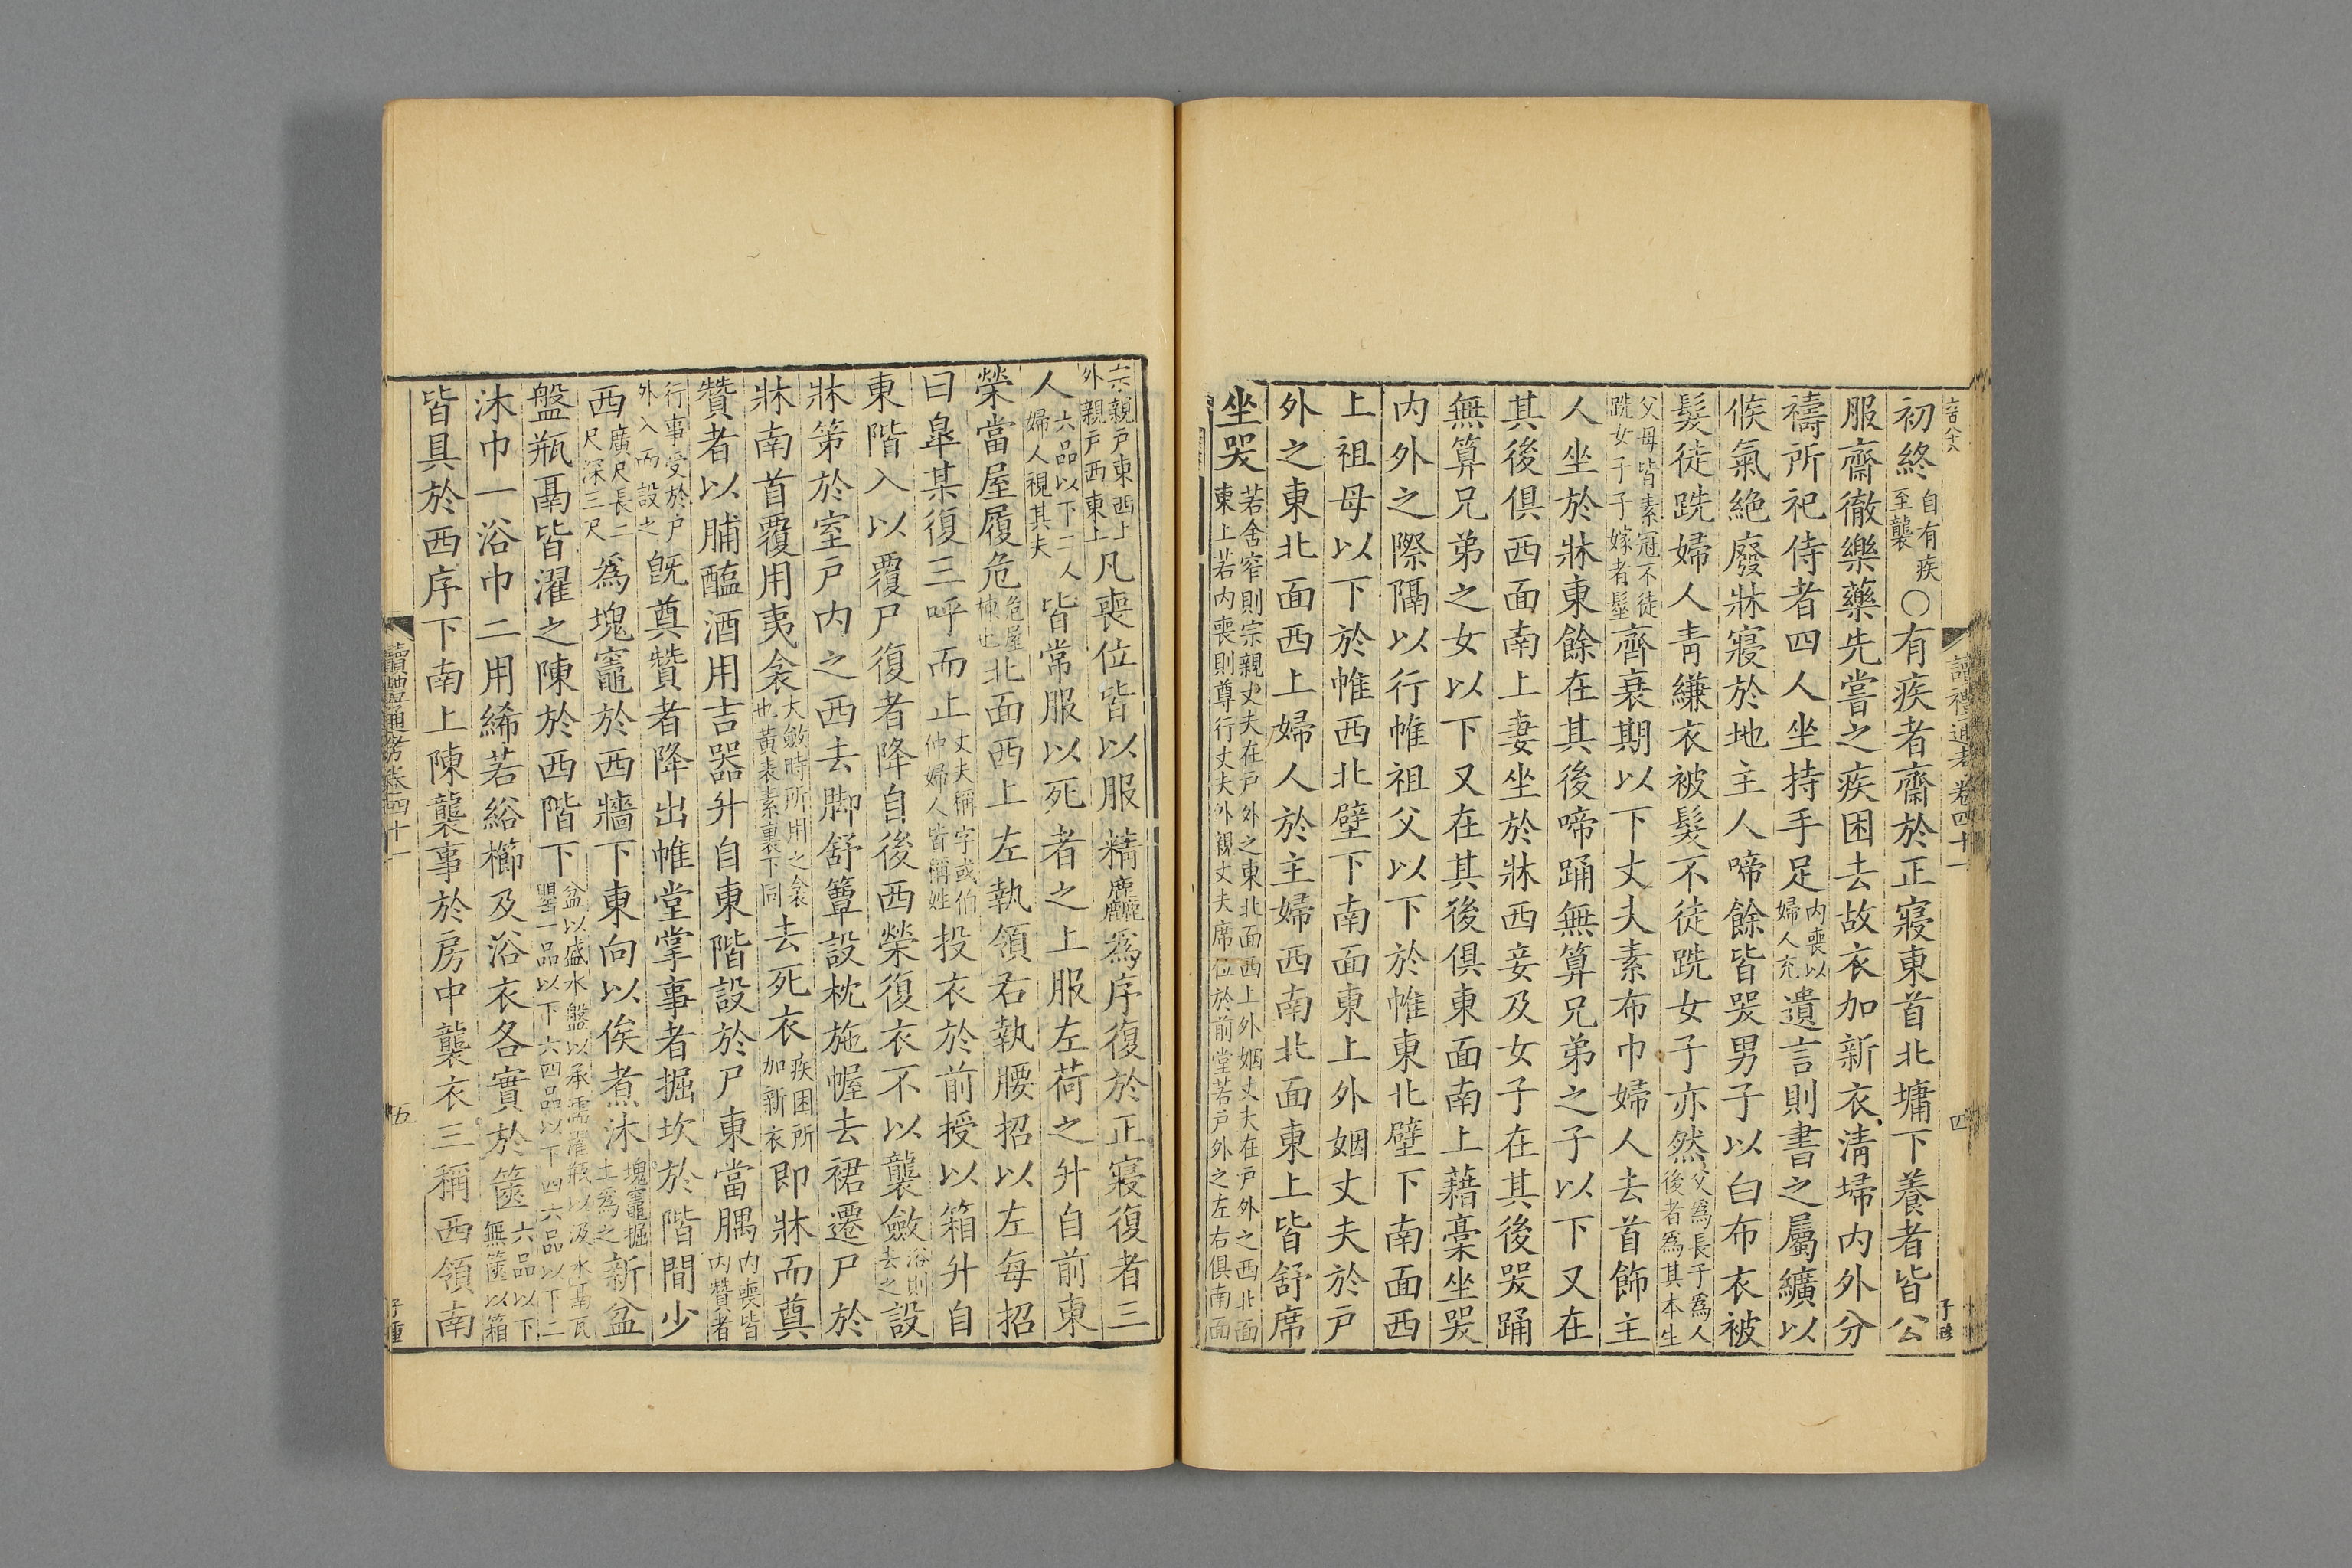 六百八十八
讀禮通考卷四十一
四
初終自有疾至襲○有疾者齋於正寢東首北墉下養者皆公
服齋徹樂藥先嘗之疾困去故衣加新衣清埽内外分
禱所祀侍者四人坐持手足内喪以婦人充遺言則書之屬纊以
候氣絶廢牀寢於地主人啼餘皆哭男子以白布衣被
髮徒跣婦人青縑衣被髮不徒跣女子亦然父爲長子爲人後者爲其本生
父母皆素冠不徒跣女子子嫁者髽齊衰期以下丈夫素布巾婦人去首飾主
人坐於牀東餘在其後啼踊無算兄弟之子以下又在
其後俱西面南上妻坐於牀西妾及女子在其後哭踊
無算兄弟之女以下又在其後俱東面南上藉稾坐哭
内外之際隔以行帷祖父以下於帷東北壁下南面西
上祖母以下於帷西北壁下南面東上外姻丈夫於戸
外之東北面西上婦人於主婦西南北面東上皆舒席
坐哭若舍窄則宗親丈夫在戸外之東北面西上外姻丈夫在戸外之西北面東上若内喪則尊行丈夫外親丈夫席位於前堂若戸外之左右俱南面
宗親戸東西上外親戸西東上凡喪位皆以服精麤爲序復於正寢復者三
人六品以下二人婦人視其夫皆常服以死者之上服左荷之升自前東
榮當屋履危危屋棟也北面西上左執領右執腰招以左每招
曰臯某復三呼而止丈夫稱字或伯仲婦人皆稱姓投衣於前授以箱升自
東階入以覆尸復者降自後西榮復衣不以襲斂浴則去之設
牀第於室戸内之西去脚舒簟設枕施幄去裙遷尸於
牀南首覆用夷衾大斂時所用之衾也黄表素裏下同去死衣疾困所加新衣即牀而奠
贊者以脯醢酒用吉器升自東階設於尸東當腢内喪皆内贊者
行事受於戸外入而設之旣奠贊者降出帷堂掌事者掘坎於階間少
西廣尺長二尺深三尺爲塊竈於西牆下東向以俟煮沐塊竈掘土爲之新盆
盤瓶鬲皆濯之陳於西階下盆以盛水盤以承濡濯瓶以汲水鬲瓦甖一品以下六四品以下四六品以下二
沐巾一浴巾二用絺若綌櫛及浴衣各實於篋六品以下無篋以箱
皆具於西序下南上陳襲事於房中襲衣三稱西領南
讀禮通考卷四十一
五